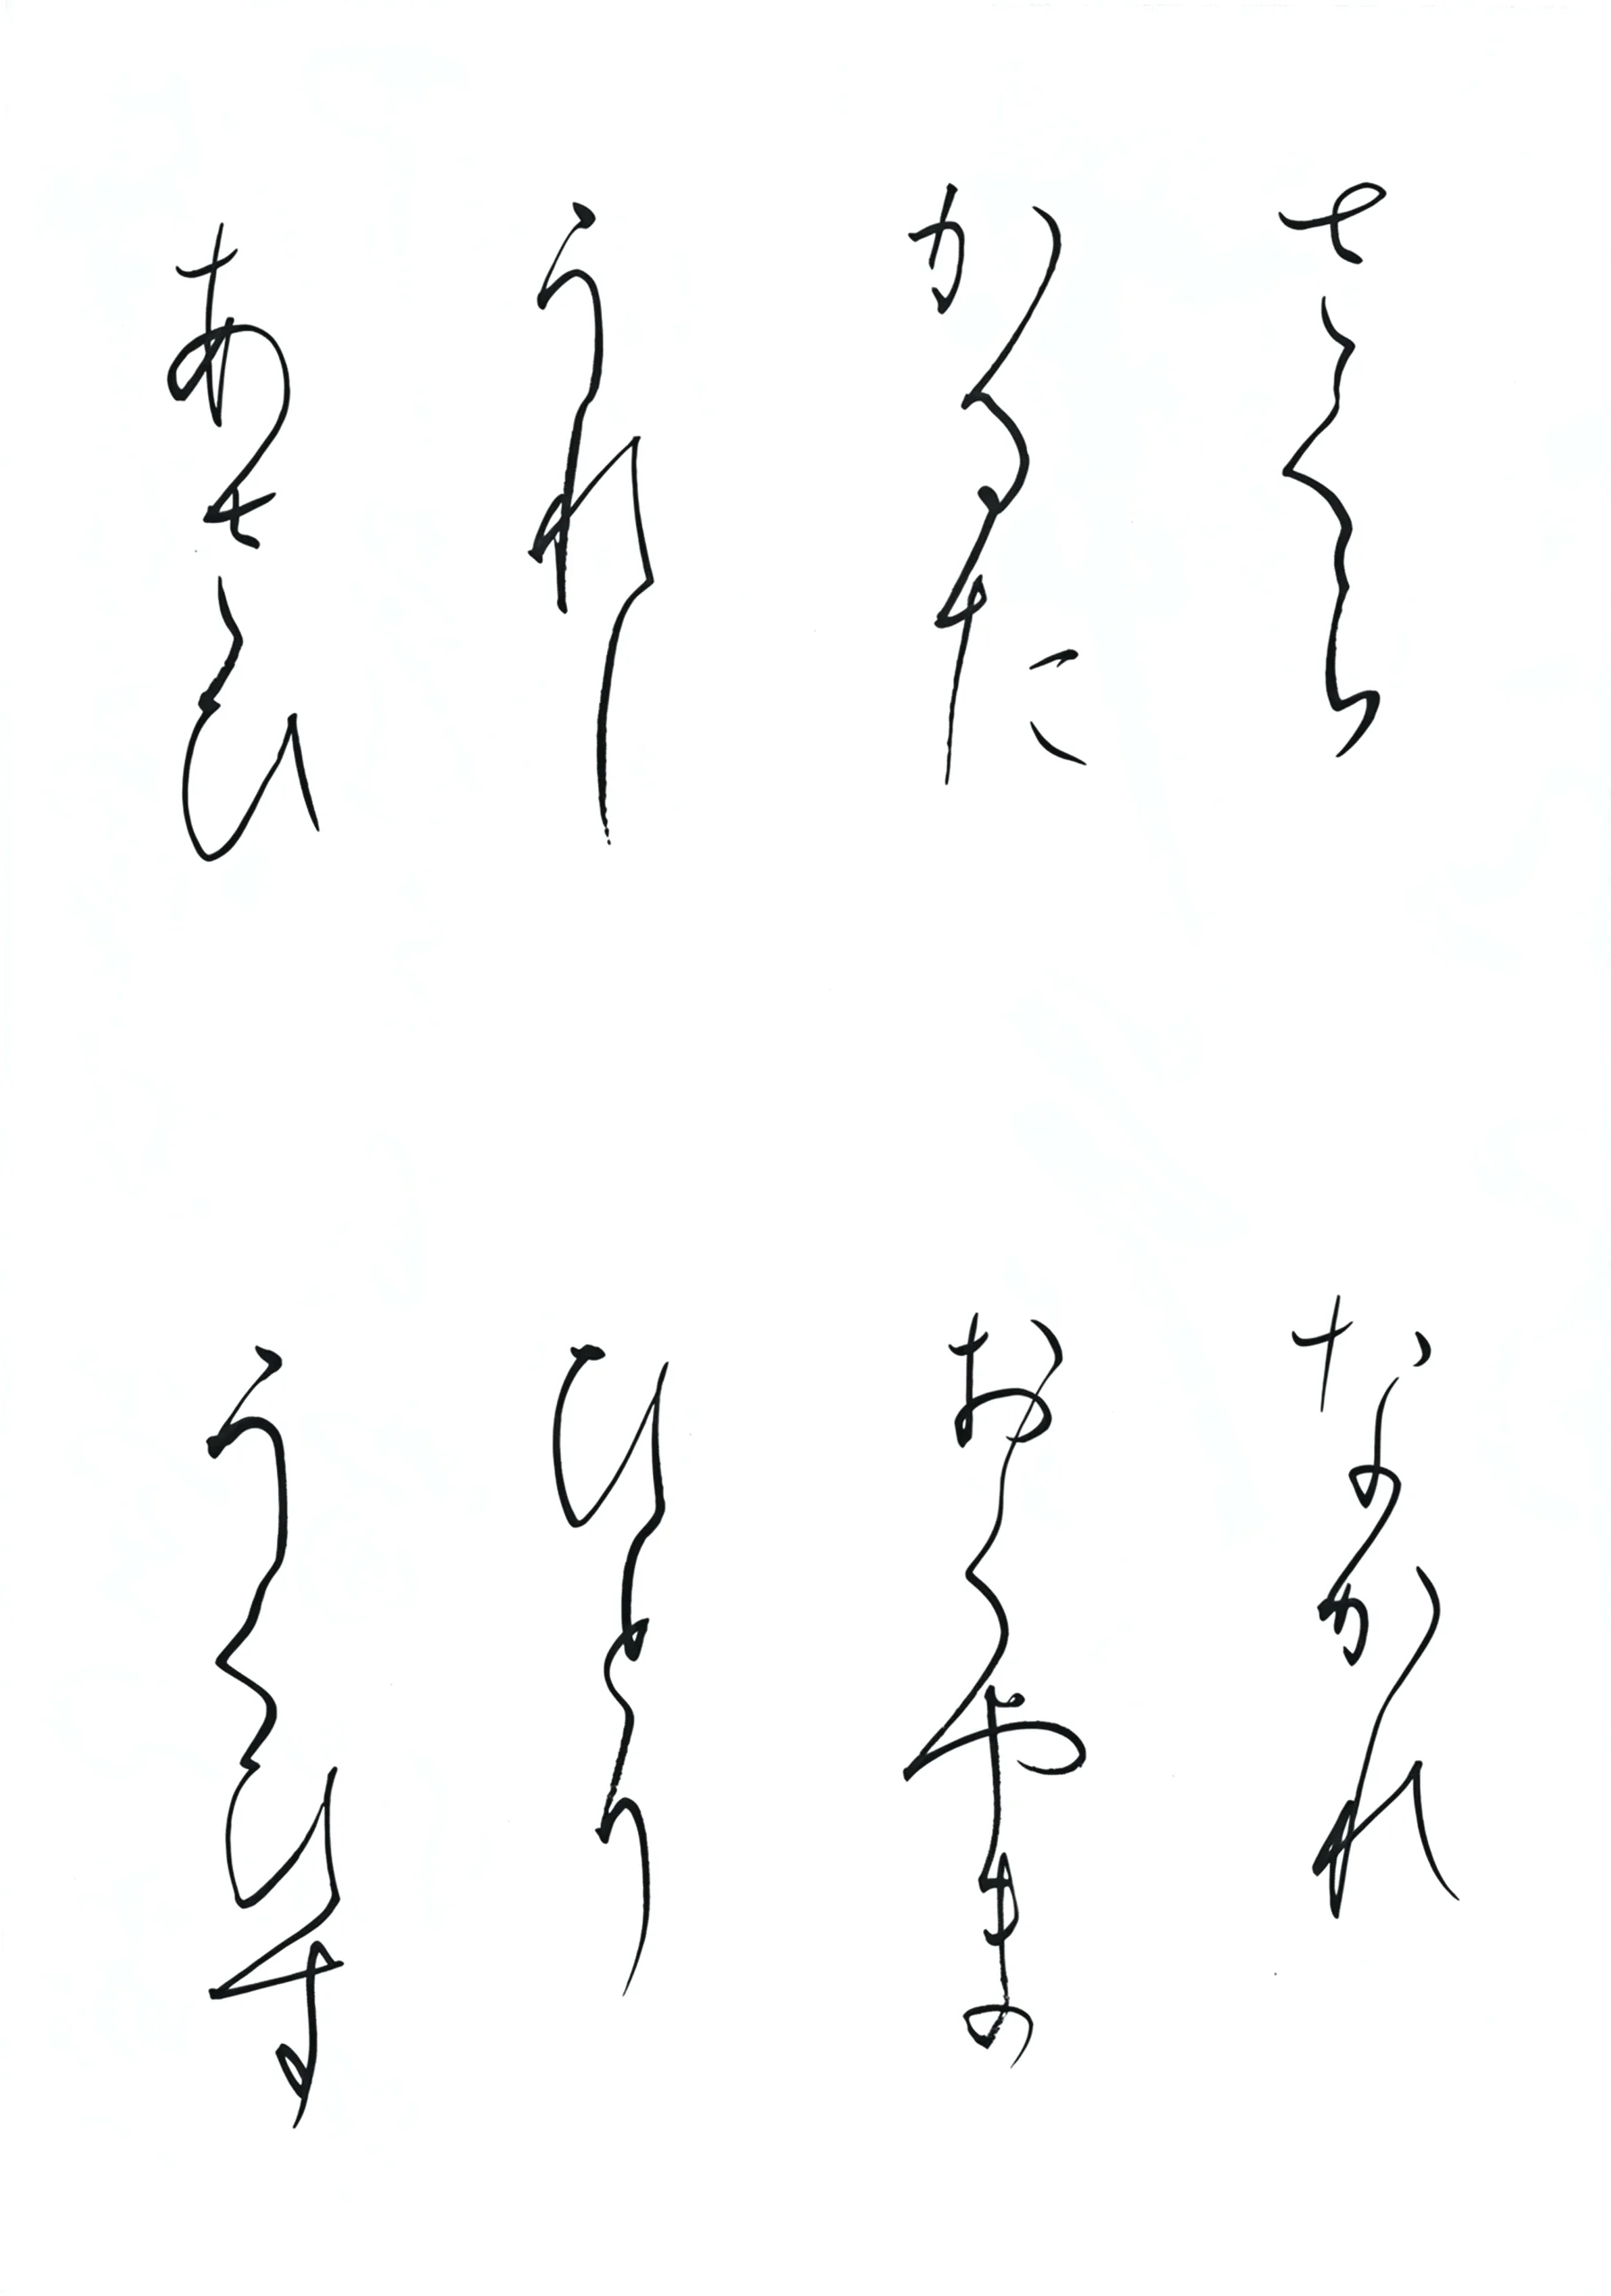 さくら
かるた
うれし
あさひ
なかれ
おくやまの
ひとり
うくひす